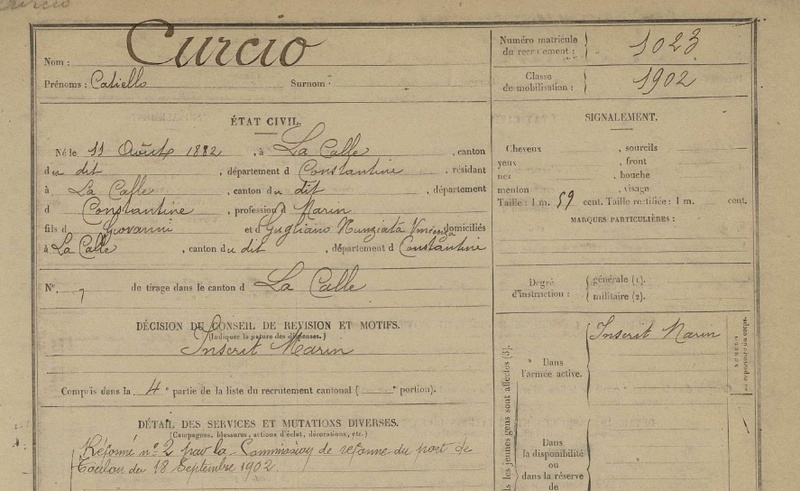 Curcio
Nom : Curcio
Prénoms : Catiello Surnom :
Numéro matricule
du recrutement : 1023
Classe
de mobilisation : 1902
ÉTAT CIVIL.
Né le 11 Août 1882, à La Calle, canton
du dit, département d Constantine, résidant
à La Calle, canton du dit, département
d Constantine, profession d Marin
fils d Giovanni et d Gugliano Nunziata Vincenza domiciliés
à La Calle, canton du dit, département d Constantine
N° 7 de tirage dans le canton d La Calle
DÉCISION DU CONSEIL DE REVISION ET MOTIFS.
(Indiquer la nature des dispenses.)
Inscrit Marin
Compris dans la 4e partie de la liste du recrutement cantonal ( e portion).
DÉTAIL DES SERVICES ET MUTATIONS DIVERSES.
(Campagnes, blessures, actions d'éclat, décorations, etc.)
Réformé n° 2 par la Commission de réforme du port de
Toulon du 18 Septembre 1902.
SIGNALEMENT.
Cheveux , sourcils
yeux , front
nez , bouche
menton , visage
Taille : 1 m. 59 cent. Taille rectifiée : 1 m. cent.
MARQUES PARTICULIÈRES :
Degré
d'instruction :
générale (1).
militaire (2).
Dans
l'armée active.
Inscrit Marin
Dans
la disponibilité
ou
dans la réserve
de
les jeunes gens sont affectés (3).